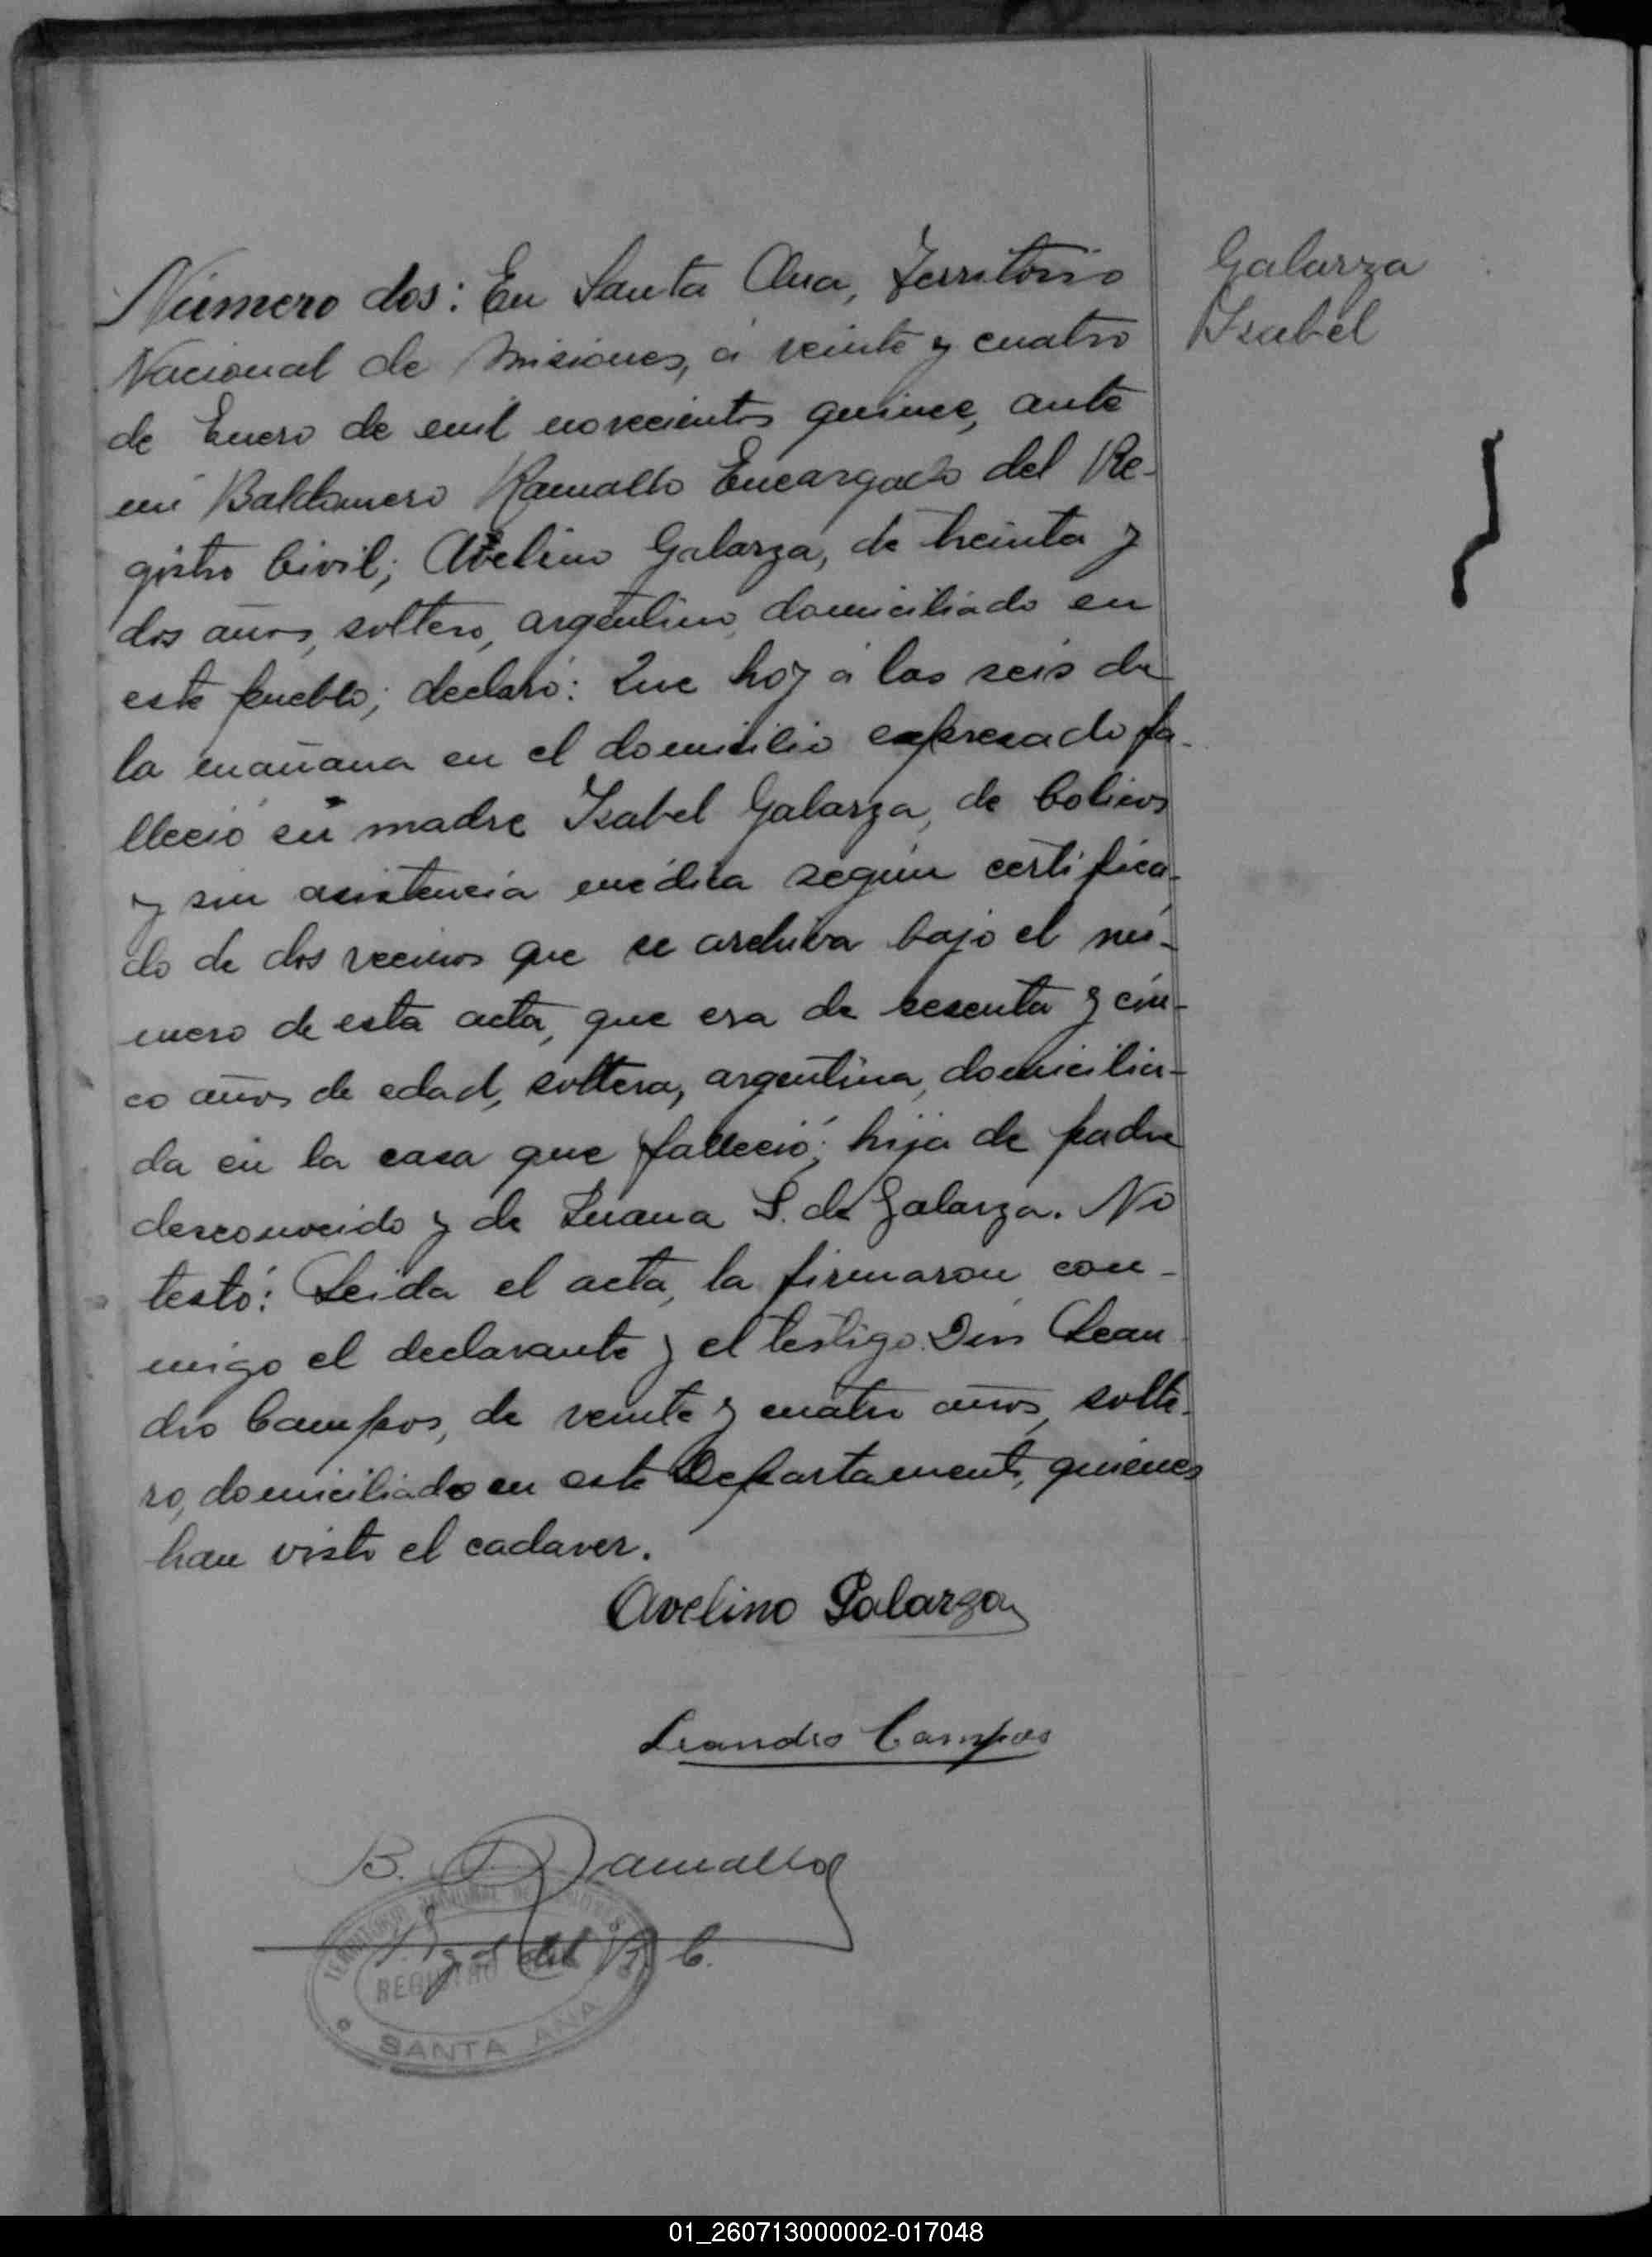 Número dos: En Santa Ana, Territorio
Nacional de Misiones, á veinte y cuatro
de Enero de mil novecientos quince, ante
mi Baldomero Ramallo Encargado del Re-
gistro Civil; Avelino Galarza, de treinta y
dos años, soltero, argentino, domiciliado en
este pueblo; declaró: Que hoy á las seis de
la mañana en el domicilio expresado fa-
lleció su madre Isabel Galarza, de colicos
y sin asistencia médica según certifica-
do de dos vecinos que se archiva bajo el nú-
mero de esta acta, que era de sesenta y cin-
co años de edad, soltera, argentina, domicilia-
da en la casa que falleció; hija de padre
desconocido y de Juana S. de Galarza. No
testó: Leida el acta, la firmaron con-
migo el declarante y el testigo Don Lean
dro Campos, de veinte y cuatro años, solte-
ro, domiciliado en este Departamento, quienes
han visto el cadaver.
Galarza
Isabel
Avelino Galarza
Leandro Campos
B. Ramallo
del R. C.
TERRITORIO NACIONAL DE MISIONES
REGISTRO
SANTA ANA
01_260713000002-017048